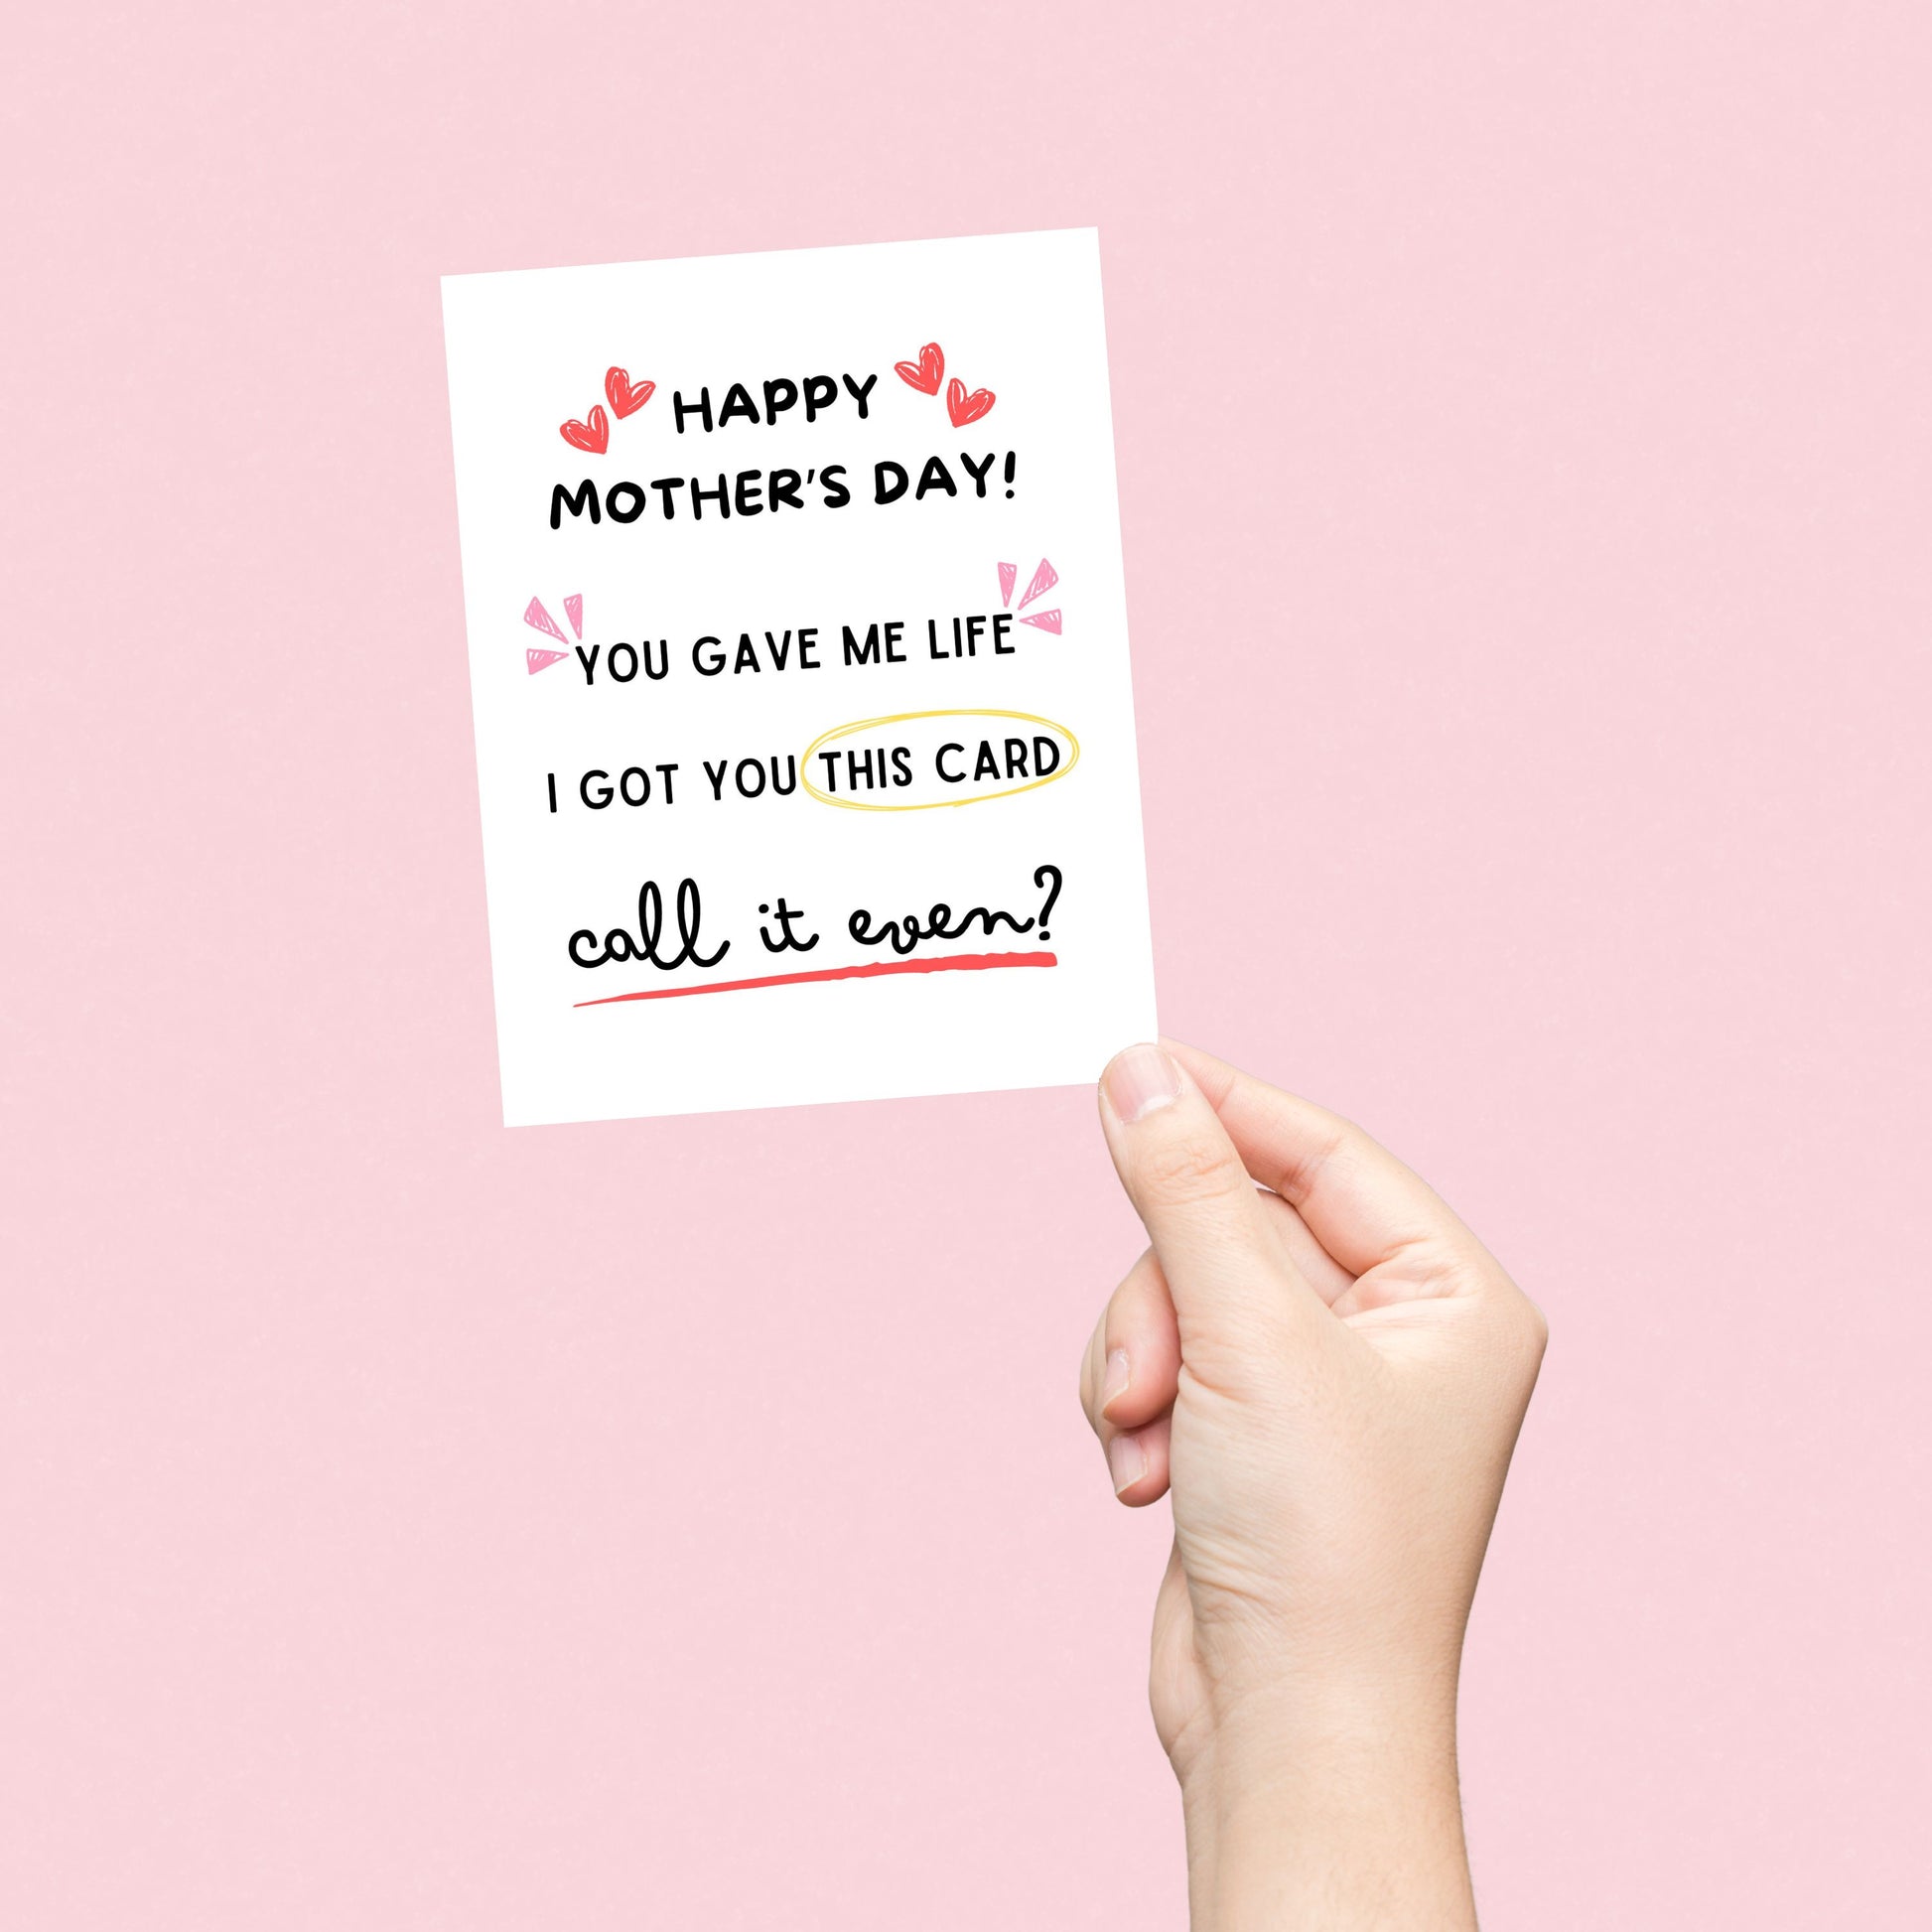 HAPPY
MOTHER'S DAY!
YOU GAVE ME LIFE
I GOT YOU THIS CARD
call it even?